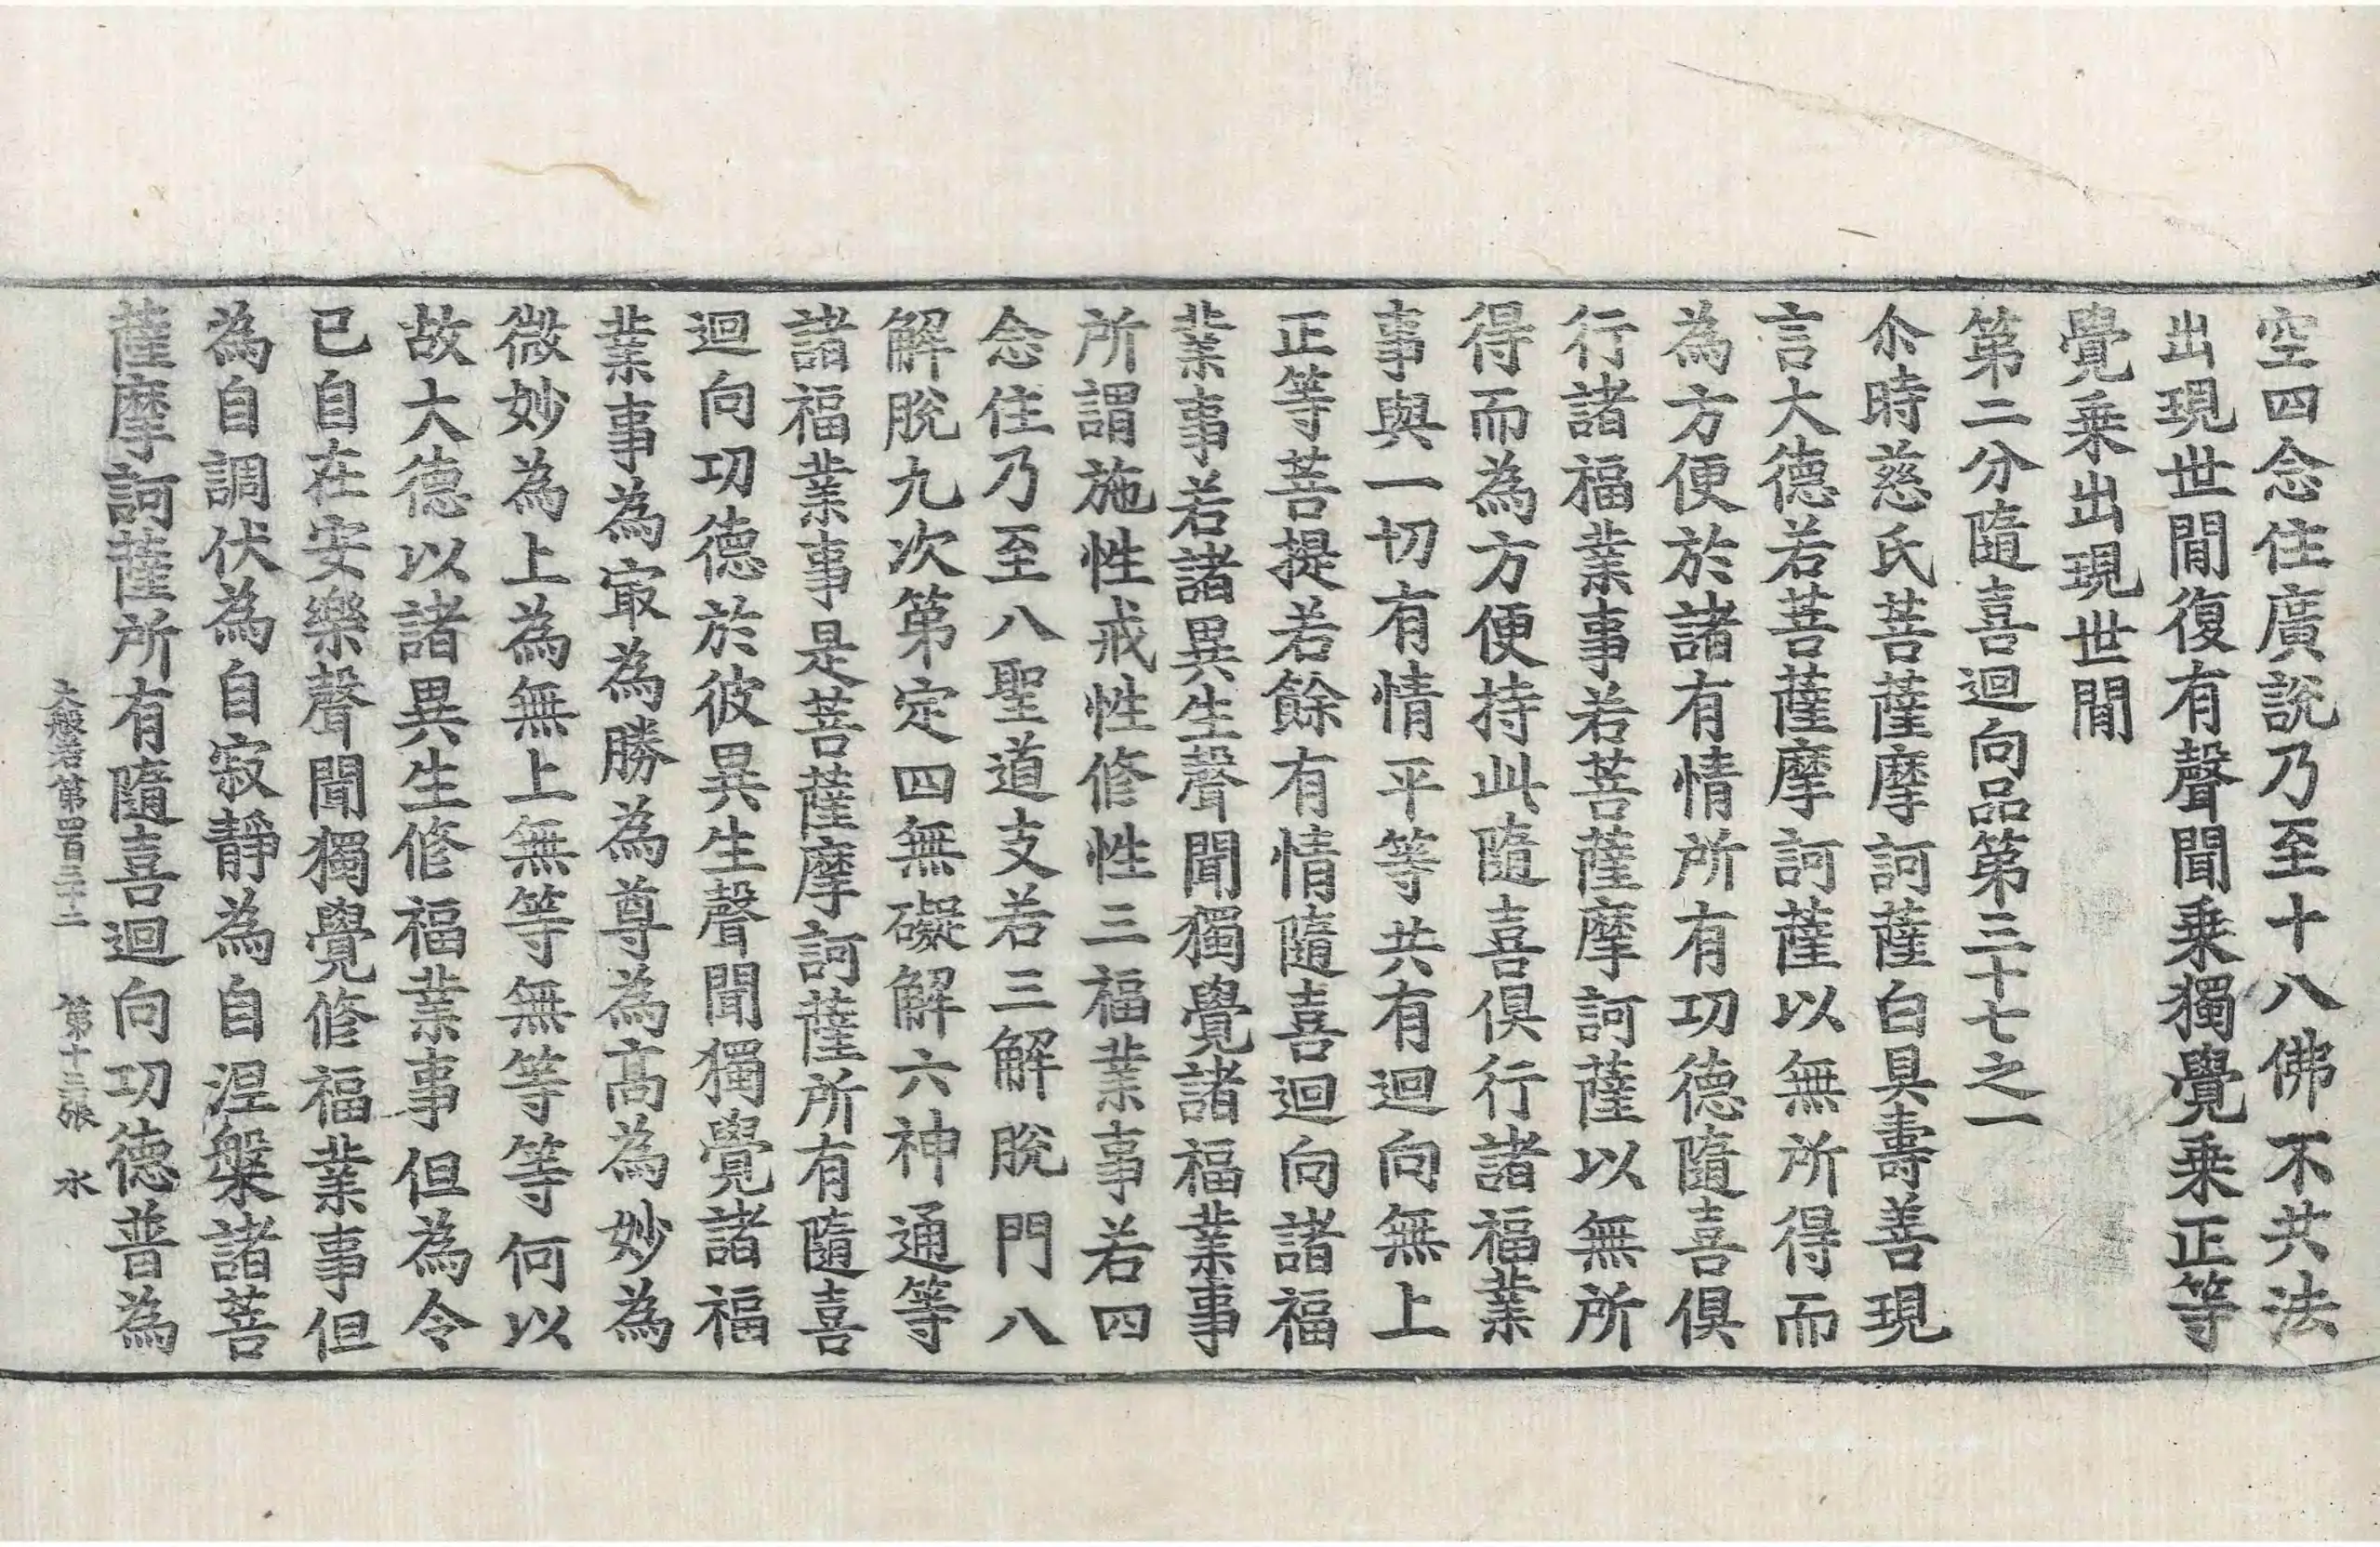 空四念住廣說乃至十八佛不共法
出現世間復有聲聞乗獨覺乗正等
覺乗出現世間
第二分隨喜迴向品第三十七之一
尒時慈氏菩薩摩訶薩白具壽善現
言大德若菩薩摩訶薩以無所得而
為方便於諸有情所有功德隨喜俱
行諸福業事若菩薩摩訶薩以無所
得而為方便持此隨喜俱行諸福業
事與一切有情平等共有迴向無上
正等菩提若餘有情隨喜迴向諸福
業事若諸異生聲聞獨覺諸福業事
所謂施性戒性修性三福業事若四
念住乃至八聖道支若三解脫門八
解脫九次第定四無礙解六神通等
諸福業事是菩薩摩訶薩所有隨喜
迴向功德於彼異生聲聞獨覺諸福
業事為㝡為勝為尊為高為妙為
微妙為上為無上無等無等等何以
故大德以諸異生修福業事但為令
已自在安樂聲聞獨覺修福業事但
為自調伏為自寂靜為自涅槃諸菩
薩摩訶薩所有隨喜迴向功德普為
大般若第四百三十二 第十三張 水